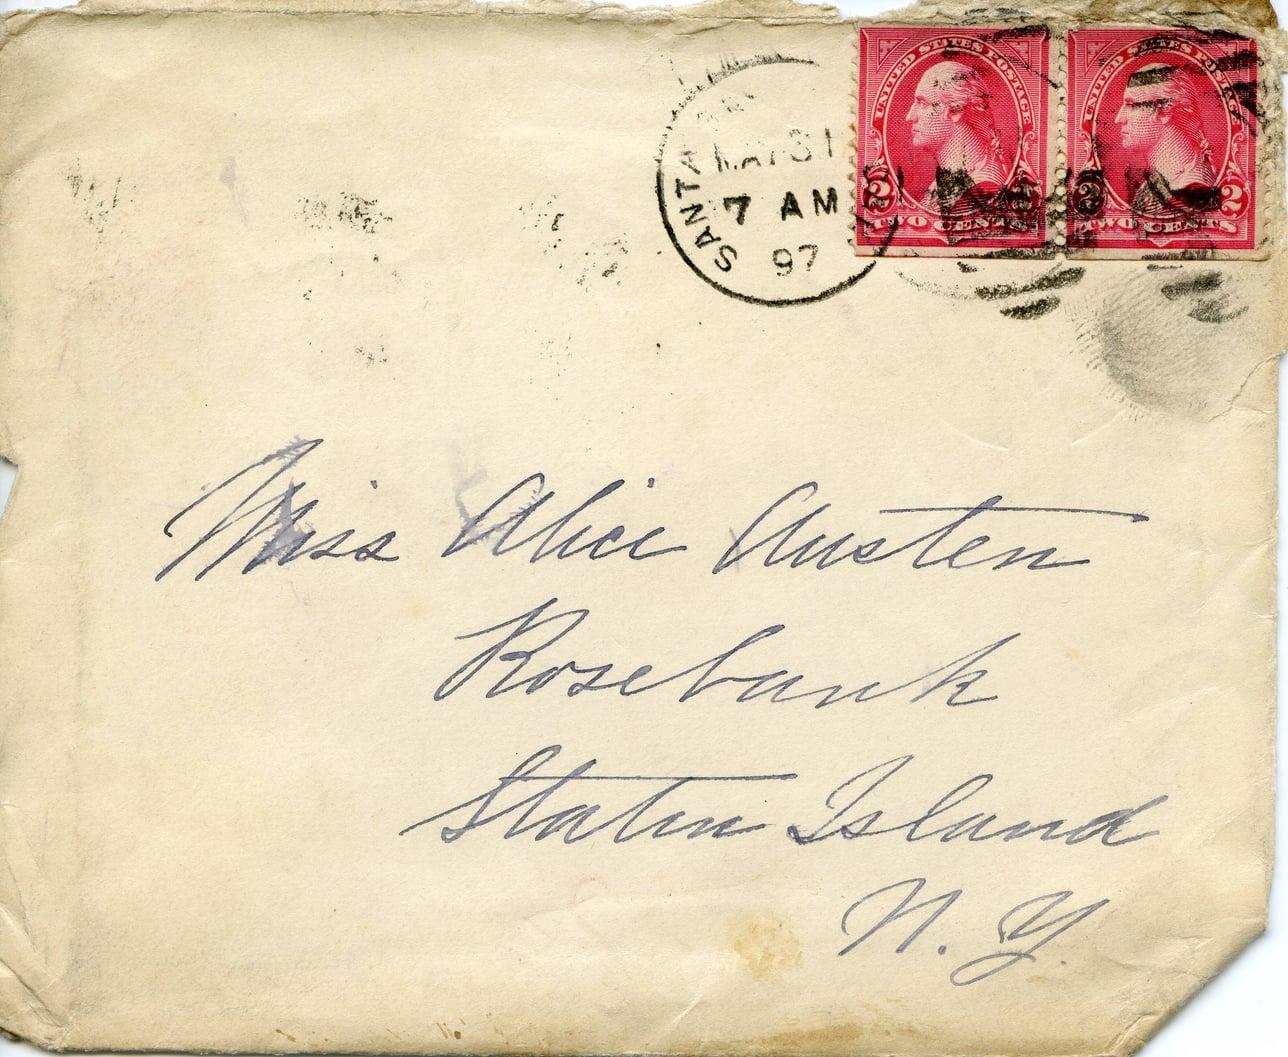 UNITED STATES POSTAGE UNITED STATES POSTAGE
SANTA
MAY 31
7 AM
97
2 2 2 2
TWO CENTS TWO CENTS
Miss Alice Austen
Rosebank
Staten Island
N. Y.